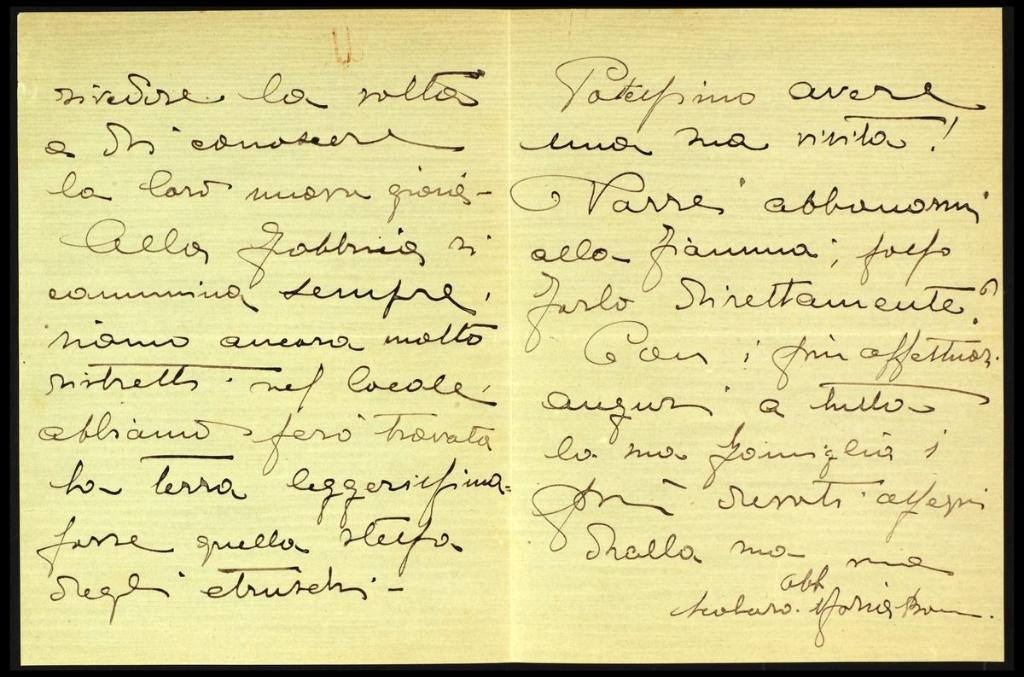 rivedere la volta
a di conoscere
la loro nuova gioia -
Alla fabbrica si
cammina sempre,
siamo ancora molto
ristretti nel locale,
abbiamo però trovata
la terra leggerissima
forse quella stessa
degli etruschi -
Potessimo avere
una sua visita!
Vorrei abbonarmi
alla Fiamma; posso
farlo direttamente?
Con i più affettuosi
auguri a tutta
la sua famiglia i
più devoti ossequi
dalla sua
obb